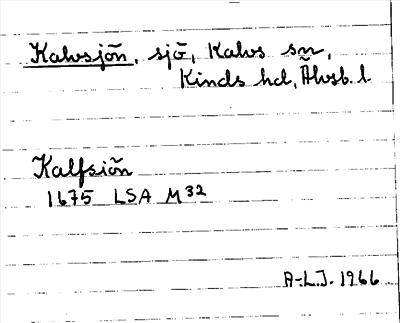 Kalvsjön, sjö, Kalvs sn,
Kinds hd, Älvsb. l.
Kalfsiön
1675 LSA M32
A-L.J. 1966